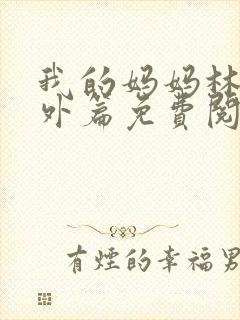 我的妈妈林
外篇免费阅
有煙的幸福男